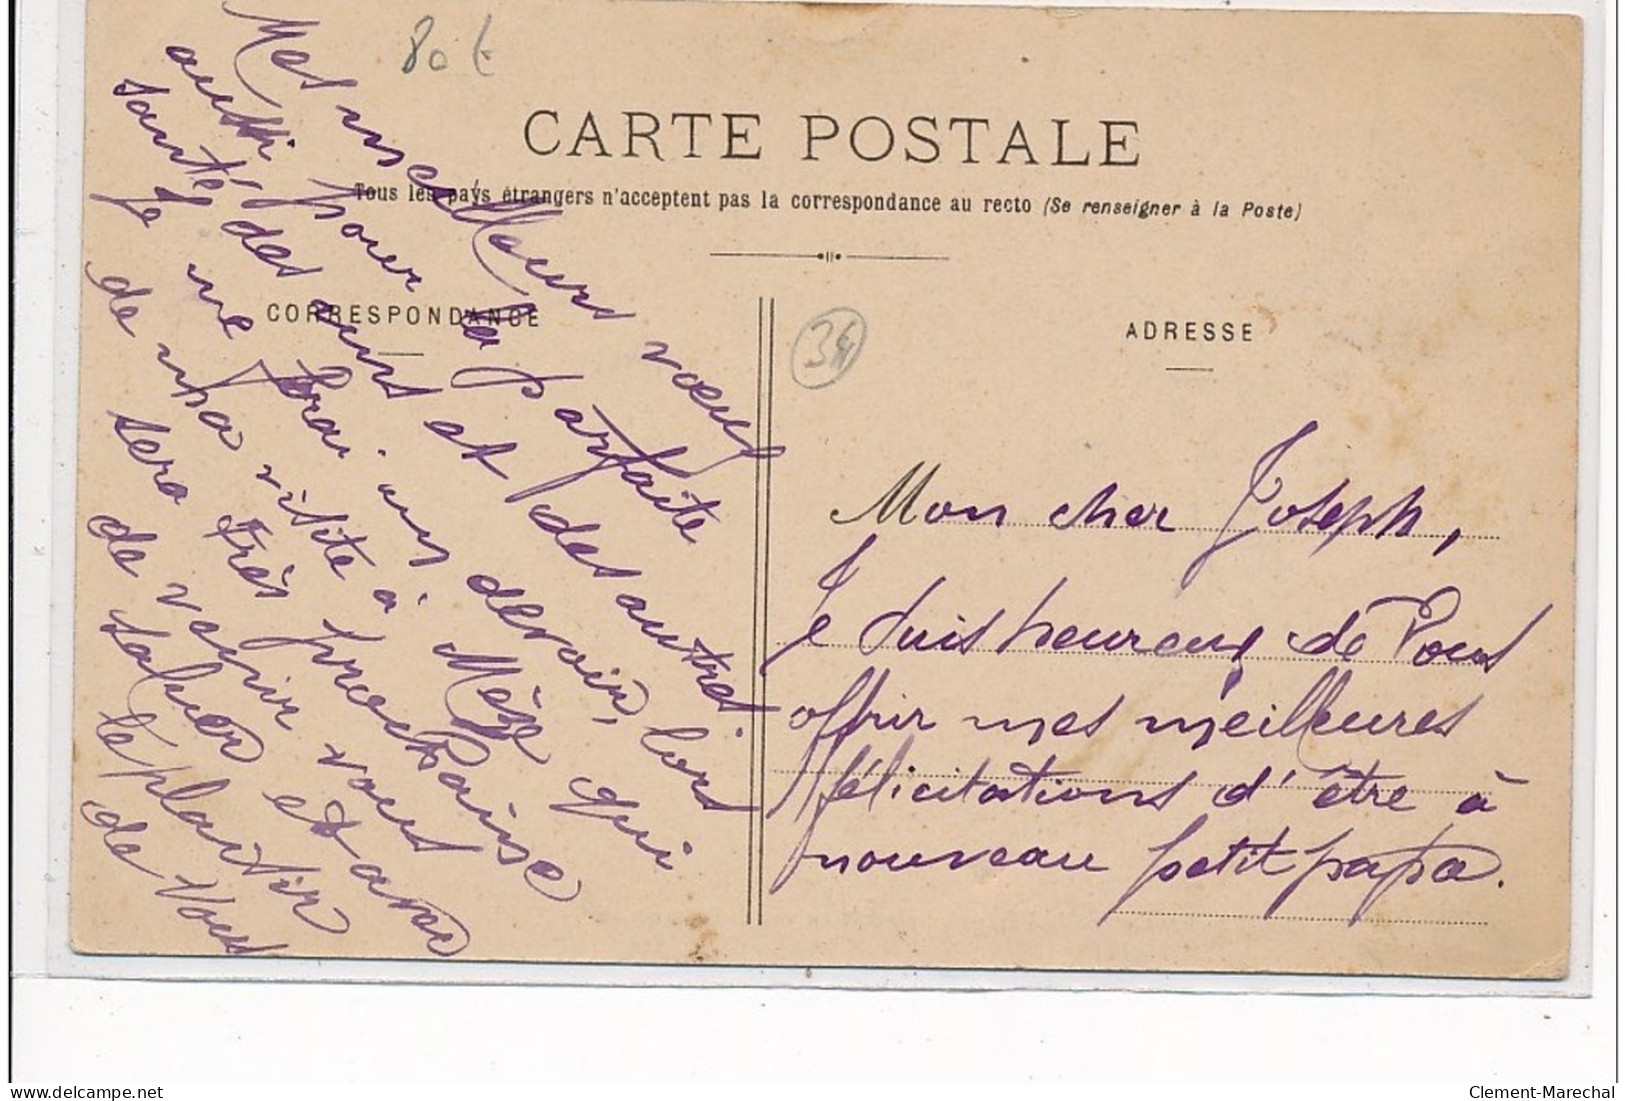 80 €
CARTE POSTALE
Tous les pays étrangers n'acceptent pas la correspondance au recto (Se renseigner à la Poste)
CORRESPONDANCE
ADRESSE
34
Mon cher Joseph,
Je suis heureux de Vous
offrir mes meilleures
félicitations d'être à
nouveau petit papa.
Mes meilleurs vœux
aussi pour la parfaite
santé des uns et des autres.
Je me ferai un devoir, lors
de ma visite à Mèze qui
sera très prochaine
de venir vous
saluer et avoir
le plaisir
de Vous
delcampe.net
Clement-Marechal